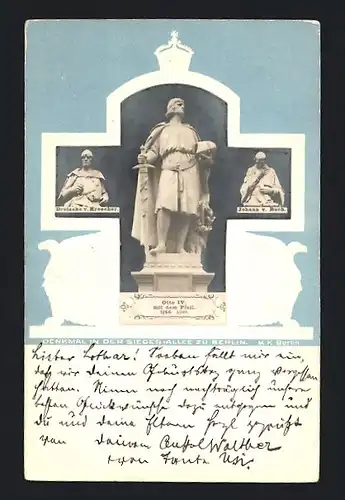 Droiseke v. Kröcher.
Johann v. Buch.
Otto IV.
mit dem Pfeil.
DENKMAL IN DER SIEGES-ALLEE ZU BERLIN. M.K. Berlin
Lieber Lothar! Soeben fällt mir ein,
daß wir deinen Geburtstag ganz vergessen
hatten. Nimm noch nachträglich unsere
besten Glückwünsche dazu entgegen und
Du und deine Eltern herzl. gegrüßt
von deinem Onkel Walther
von Tante